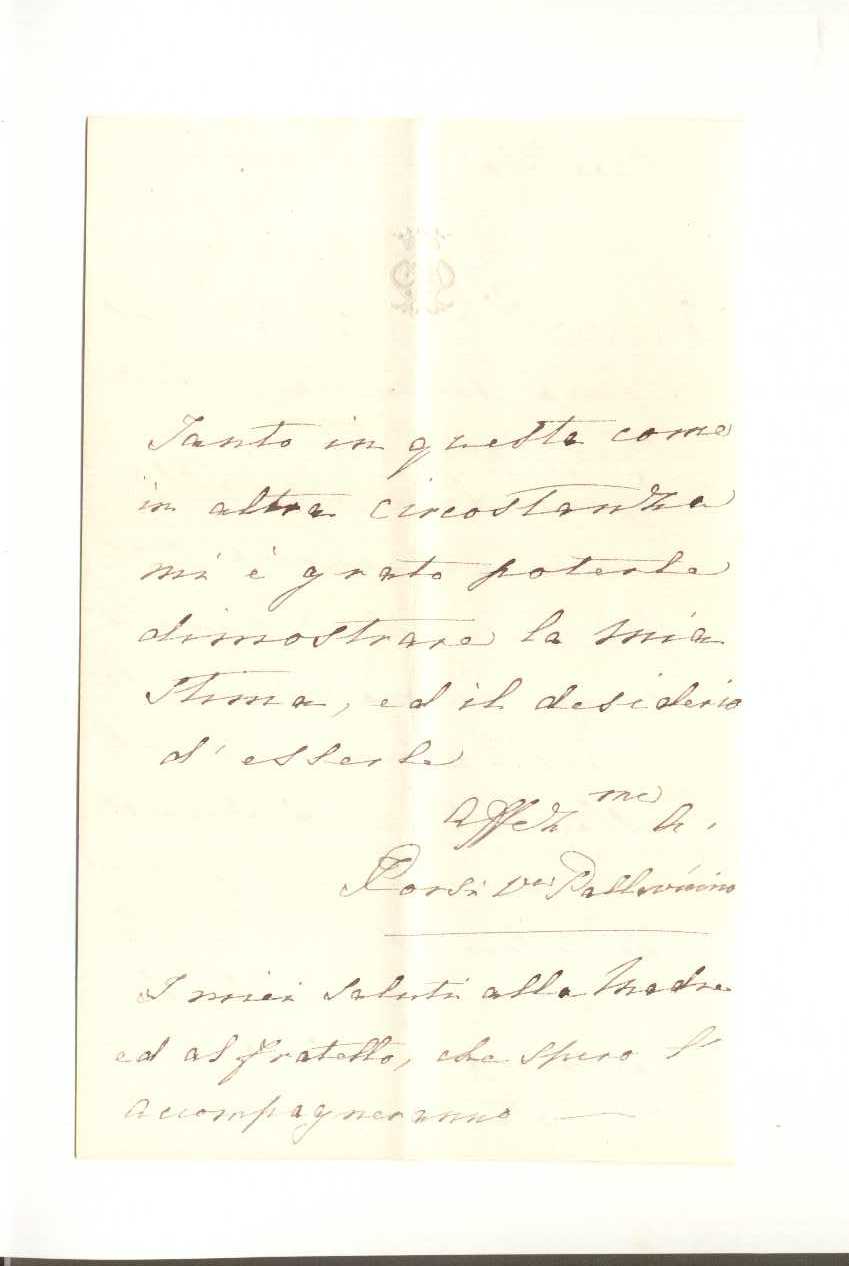 Tanto in questa come
in altra circostanza
mi è grato poterle
dimostrare la mia
stima, ed il desiderio
d'esserle
Affez.me A.
Corsi Pallavicino
I miei saluti alla Madre
ed al fratello, che spero l'
accompagneranno —